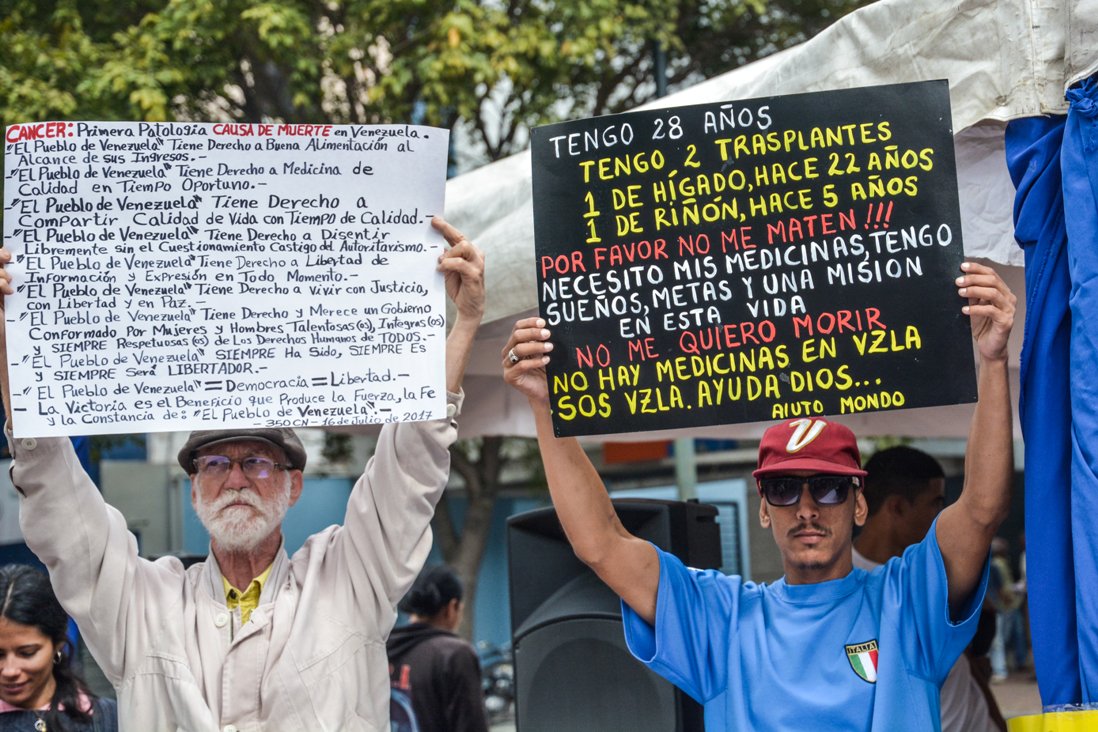 CANCER: Primera Patología CAUSA DE MUERTE en Venezuela.
"El Pueblo de Venezuela" Tiene Derecho a Buena Alimentación al
Alcance de sus Ingresos.-
-"El Pueblo de Venezuela" Tiene Derecho a Medicina de
Calidad en Tiempo Oportuno.-
-"El Pueblo de Venezuela" Tiene Derecho a
Compartir Calidad de Vida con Tiempo de Calidad.-
-"El Pueblo de Venezuela" Tiene Derecho a Disentir
Libremente sin el Cuestionamiento Castigo del Autoritarismo.-
-"El Pueblo de Venezuela" Tiene Derecho a Libertad de
Información y Expresión en Todo Momento.-
-"El Pueblo de Venezuela" Tiene Derecho a vivir con Justicia,
con Libertad y en Paz.-
-"El Pueblo de Venezuela" Tiene Derecho y Merece un Gobierno
Conformado Por Mujeres y Hombres Talentosas(os), Íntegras(os)
y SIEMPRE Respetuosas(os) de Los Derechos Humanos de TODOS.-
-"El Pueblo de Venezuela" SIEMPRE Ha Sido, SIEMPRE Es
y SIEMPRE Será LIBERTADOR.-
-"El Pueblo de Venezuela" = Democracia = Libertad.-
-La Victoria es el Beneficio que Produce la Fuerza, la Fe
y la Constancia de: "El Pueblo de Venezuela".-
-350CN-16 de Julio de 2017
TENGO 28 AÑOS
TENGO 2 TRASPLANTES
1 DE HÍGADO, HACE 22 AÑOS
1 DE RIÑÓN, HACE 5 AÑOS
POR FAVOR NO ME MATEN!!!
NECESITO MIS MEDICINAS, TENGO
SUEÑOS, METAS Y UNA MISION
EN ESTA VIDA
NO ME QUIERO MORIR
NO HAY MEDICINAS EN VZLA
SOS VZLA. AYUDA DIOS...
AIUTO MONDO
V
ITALIA